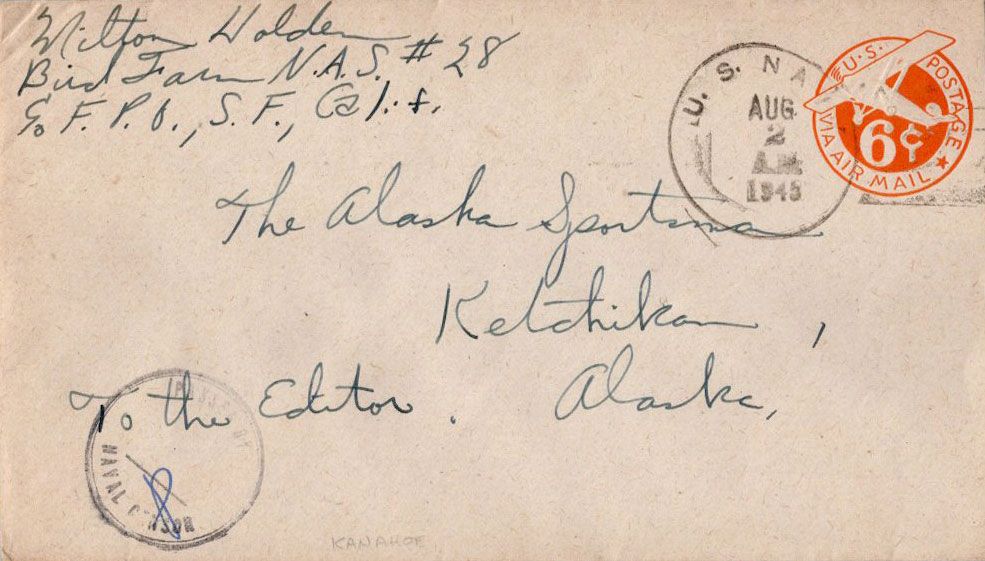 Milton Holden
Bird Farm N.A.S. # 28
c/o F.P.O., S.F., Calif.
U.S. NA
AUG
2
A.M.
1945
U.S. POSTAGE
6¢
VIA AIR MAIL
The Alaska Sportsman
Ketchikan,
To the Editor. Alaska,
PASSED BY
NAVAL CENSOR
KANAHOE